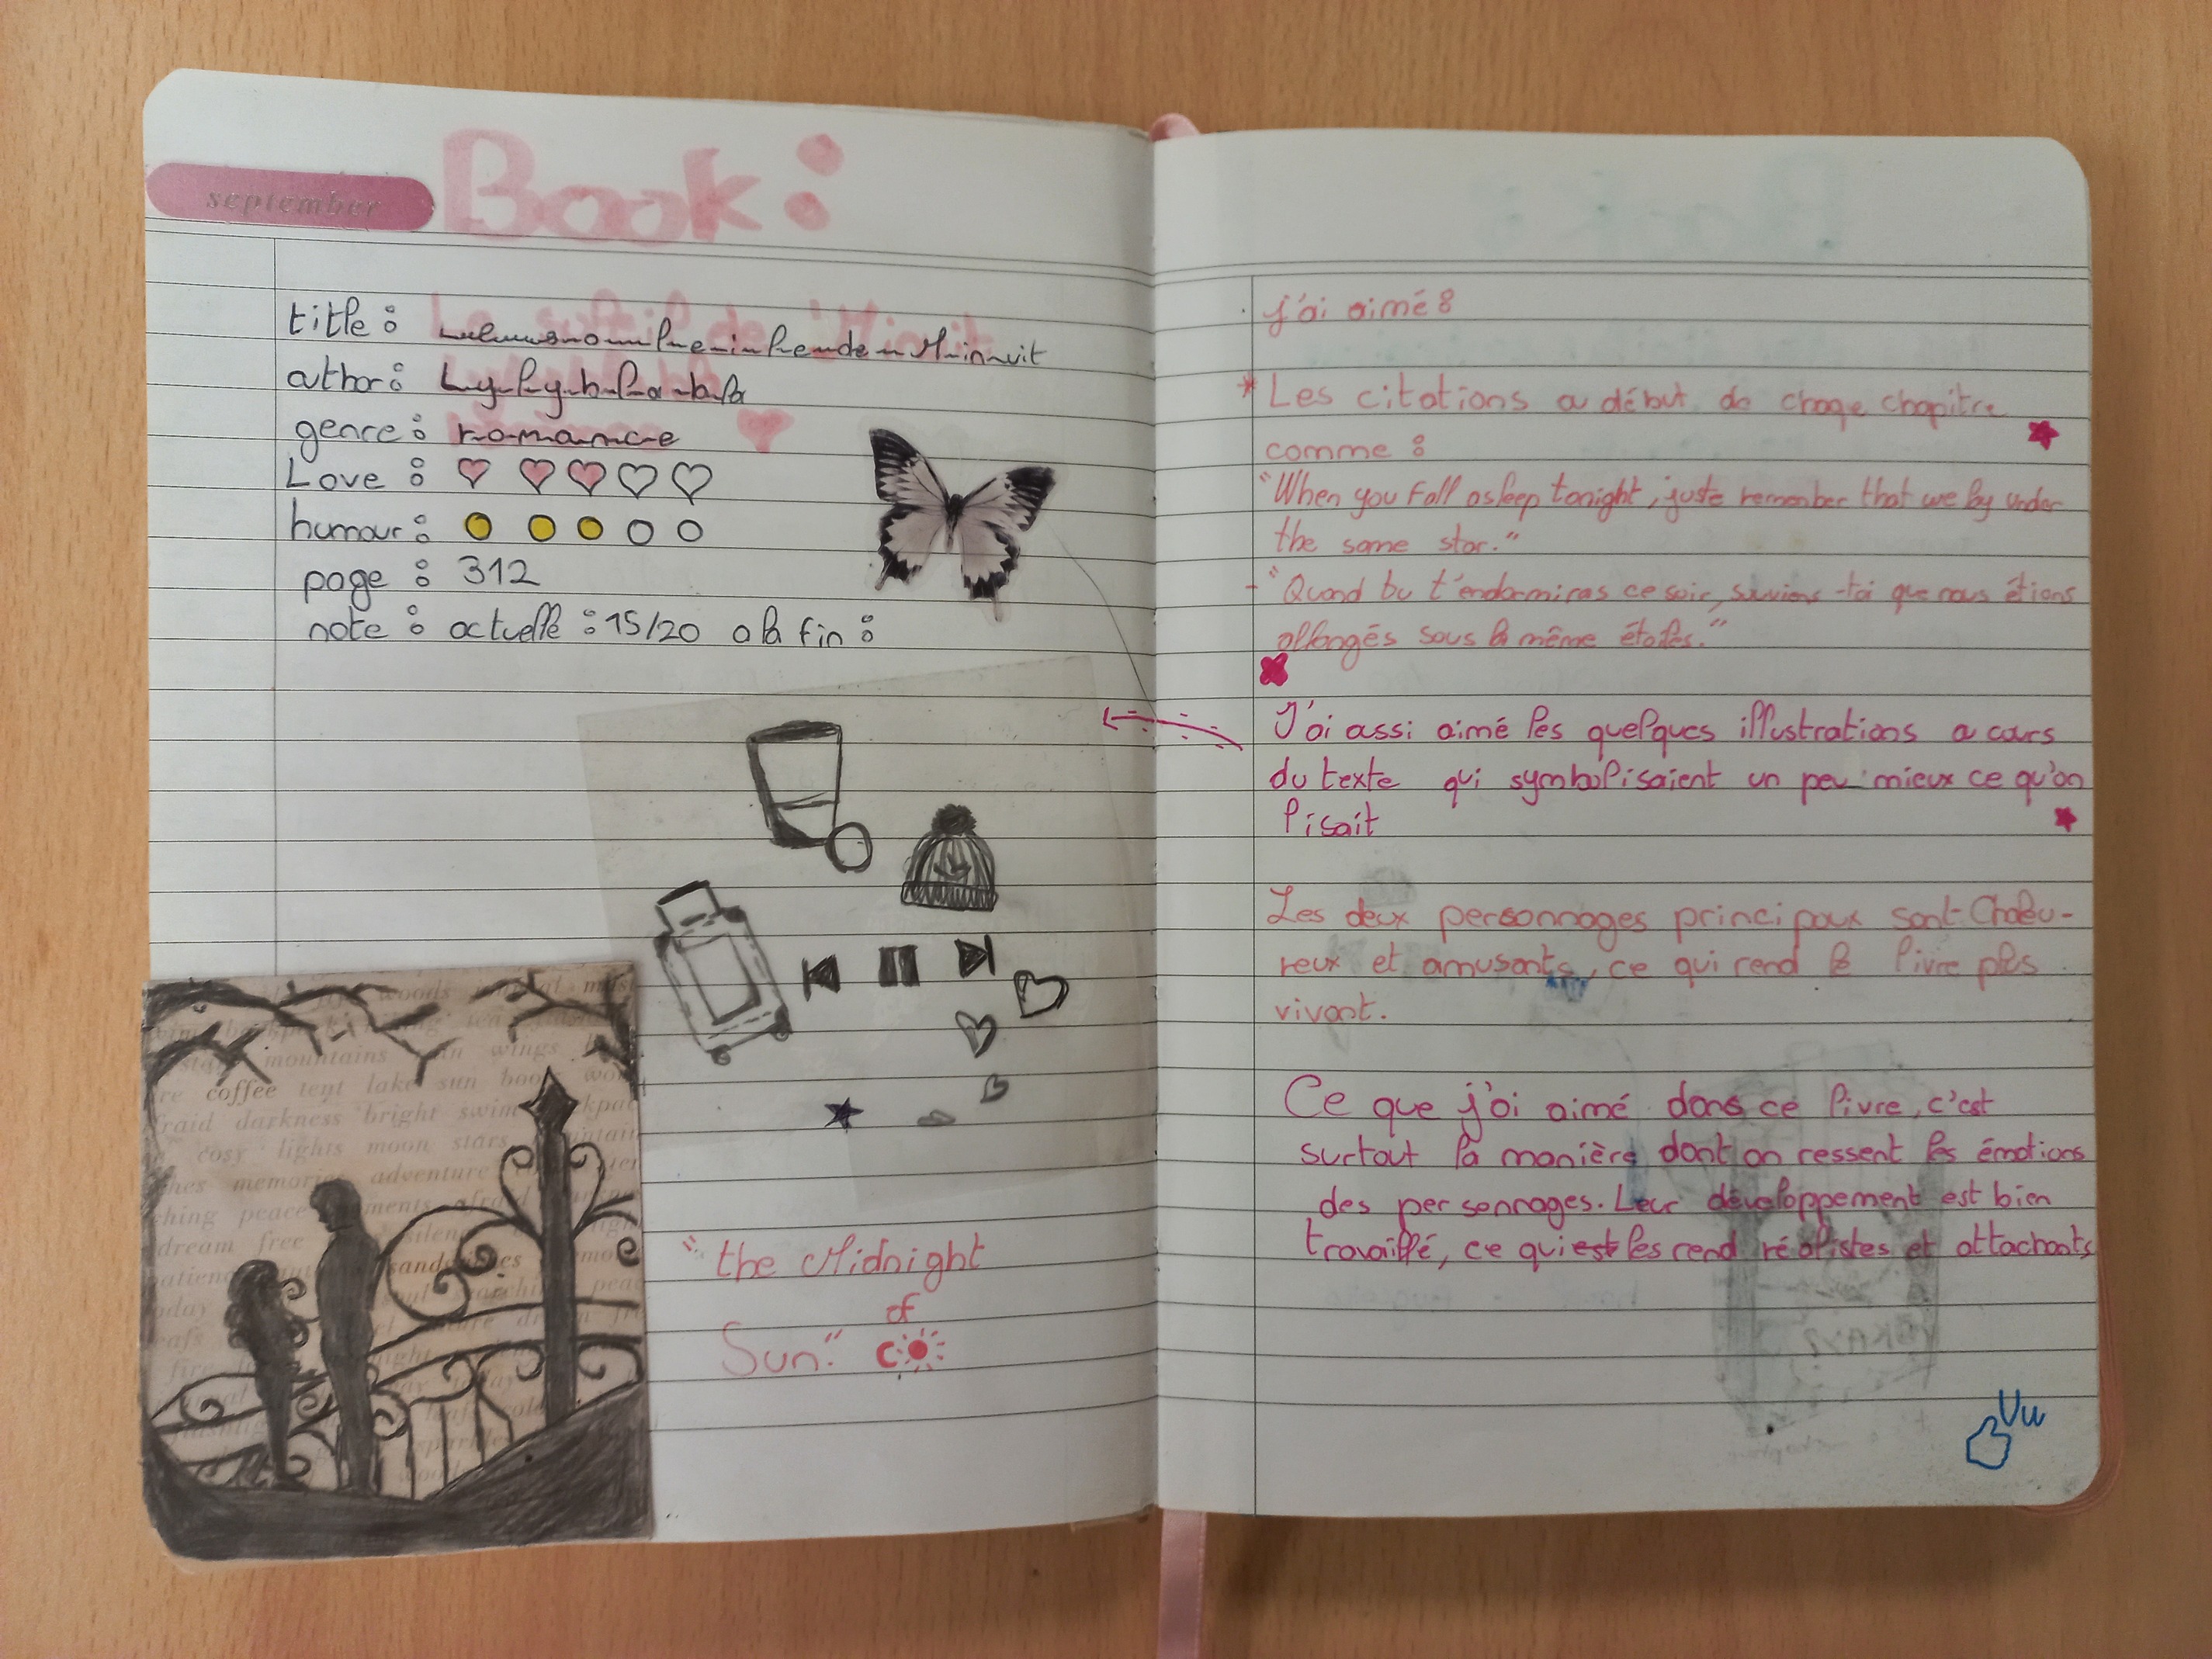 september
Book :
title : Le soleil de Minuit
author : Lylyblabla
genre : romance
Love :
humour :
page : 312
note : actuelle : 15/20 a la fin :
woods
mountains in wings
coffee tent lake sun book
darkness bright swim
cosy lights moon stars
memories adventure
peace
dream free
"the Midnight
of
Sun."
j'ai aimé :
* Les citations a début de chaqe chapitre
comme :
"When you fall asleep tonight, juste remember that we lay under
the same star."
- "Quand tu t'endormiras ce soir, suviens-toi que nous étions
allongés sous la même étoiles."
J'ai assi aimé les quelques illustrations a cours
du texte qui symbolisaient un peu mieux ce qu'on
lisait
Les deux personnages principaux sont Chaleu-
reux et amusants, ce qui rend le livre plus
vivant.
Ce que j'ai aimé dans ce livre, c'est
surtout la manière dont on ressent les émotions
des personnages. Leur développement est bien
travaillé, ce qui est les rend réalistes et attachants
Vu